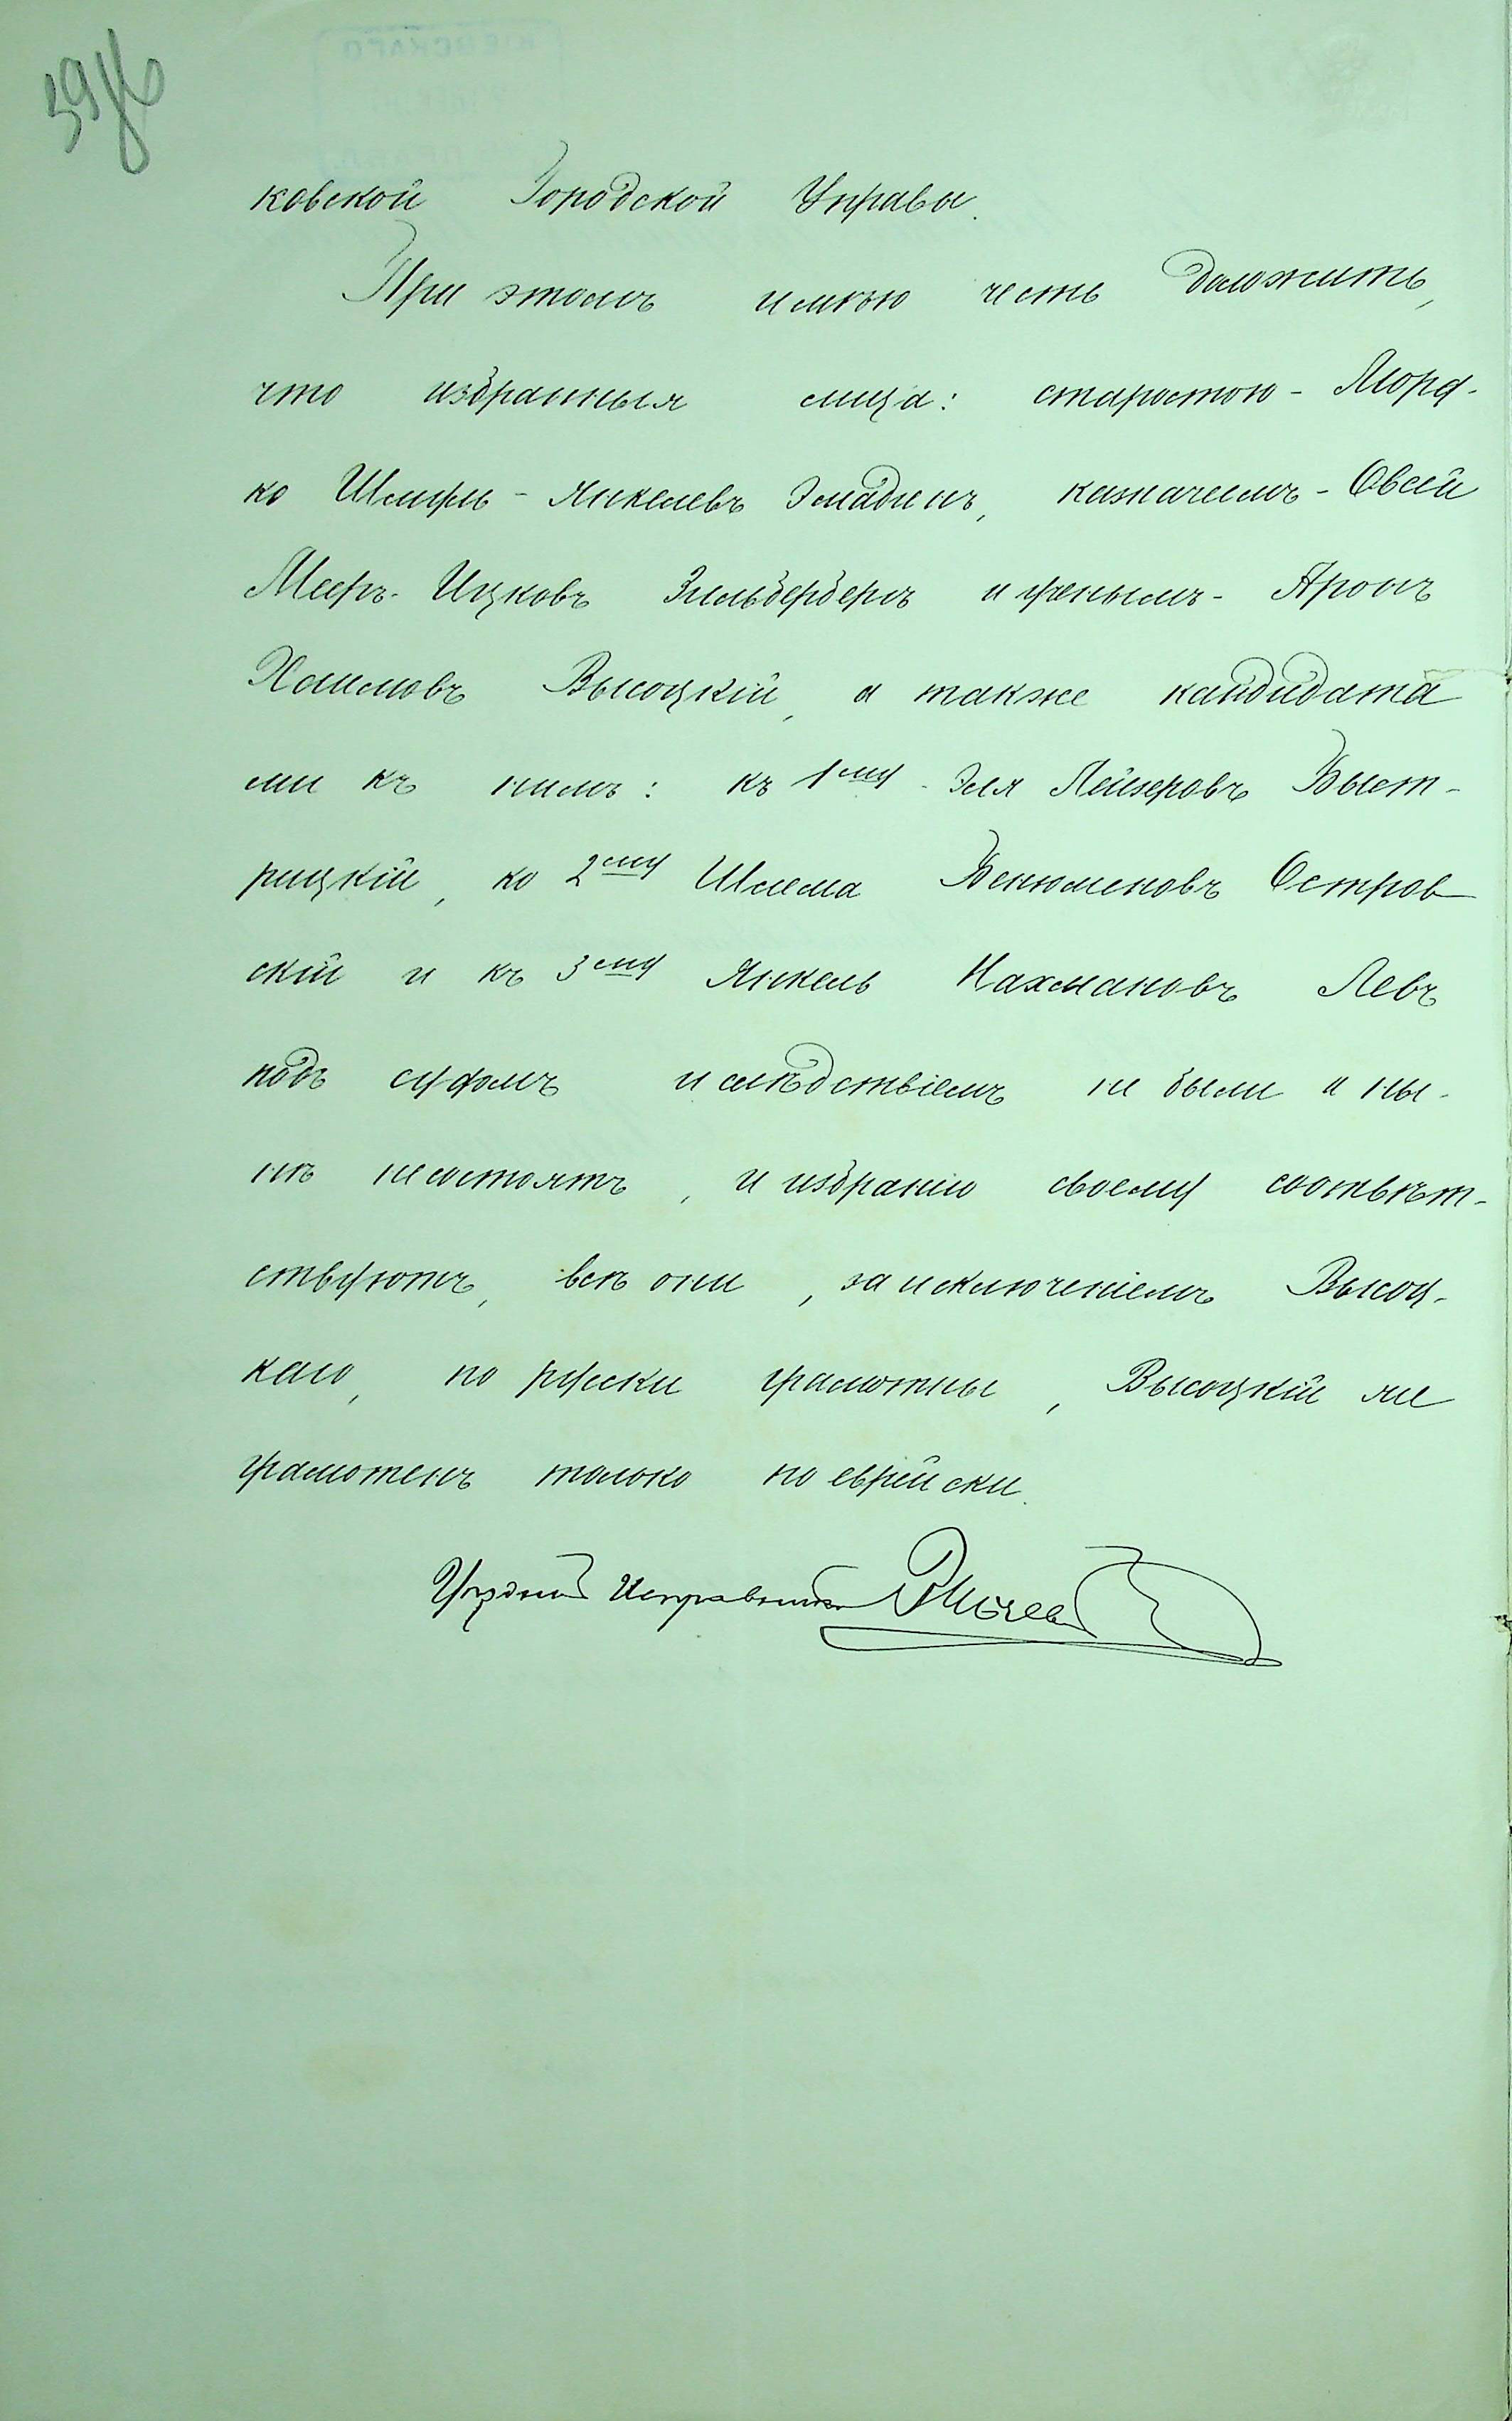 ковской Городской Управы.
При этомъ имѣю честь доложить,
что избранныя лица: старостою - Морд-
ко Шмуль - Янкелевъ Эмадинъ, казначеемъ - Овсей
Мееръ - Ицковъ Зильбербергъ и ученымъ - Аронъ
Хаимовъ Высоцкій, а также кандидата
ми къ нимъ: къ 1му - Эля Лейзеровъ Быст-
рицкій, ко 2му Шлема Бенюменовъ Остров
скій и къ 3му Янкель Нахмановъ Левъ
подъ судомъ и слѣдствіемъ не были и ны-
нѣ несостоятъ, и избранію своему соотвѣт-
ствуютъ, всѣ они, за исключеніемъ Высоц-
каго, по русски грамотны, Высоцкій же
грамотенъ толоко по еврейски.
Уѣздный Исправникъ